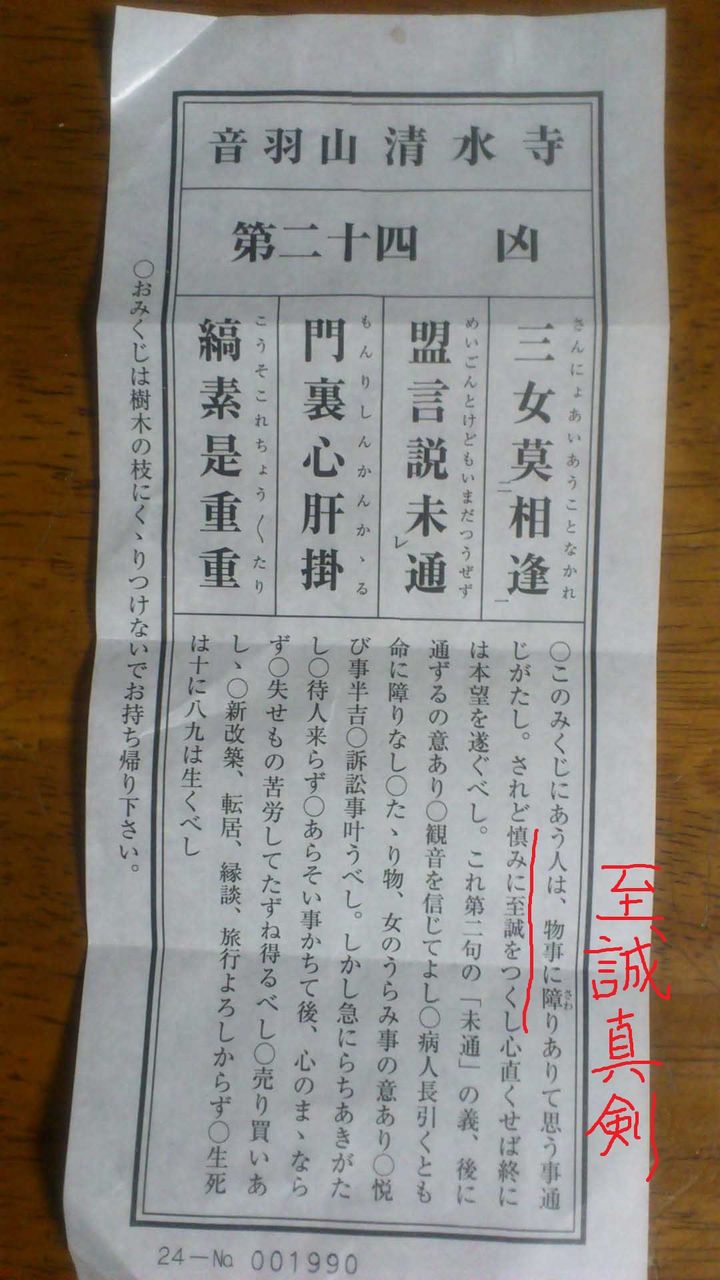 音羽山 清水寺
第二十四 凶
さんにょあいあうことなかれ
三女莫二相逢一
めいごんとけどもいまだつうぜず
盟言説未レ通
もんりしんかんかゝる
門裏心肝掛
こうそこれちょう〱たり
縞素是重重
〇このみくじにあう人は、物事に障りありて思う事通
さわ
じがたし。されど慎みに至誠をつくし心直くせば終に
は本望を遂ぐべし。これ第二句の「未通」の義、後に
通ずるの意あり〇観音を信じてよし〇病人長引くとも
命に障りなし〇たゝり物、女のうらみ事の意あり〇悦
び事半吉〇訴訟事叶うべし。しかし急にらちあきがた
し〇待人来らず〇あらそい事かちて後、心のまゝなら
ず〇失せもの苦労してたずね得るべし〇売り買いあ
しゝ〇新改築、転居、縁談、旅行よろしからず〇生死
は十に八九は生くべし
〇おみくじは樹木の枝にくゝりつけないでお持ち帰り下さい。
24-No 001990
至誠真剣